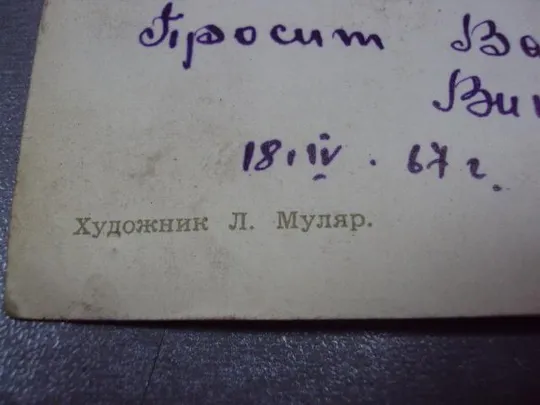 Просит
18.IV.67 г.
Художник Л. Муляр.